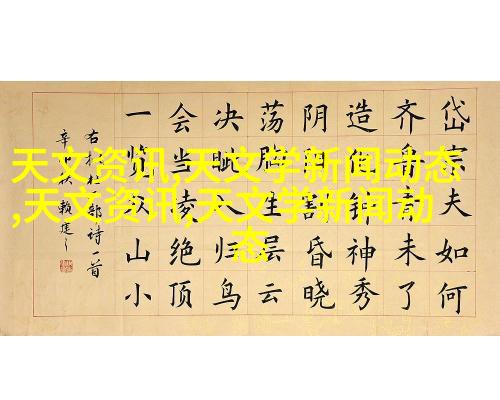 天文资讯,天文学新闻动态
,天文资讯,天文学新闻动
态
岱宗夫如何
齐鲁青未了
造化钟神秀
阴阳割昏晓
荡胸生层云
决眦入归鸟
会当凌绝顶
一览众山小
右杜工部诗一首